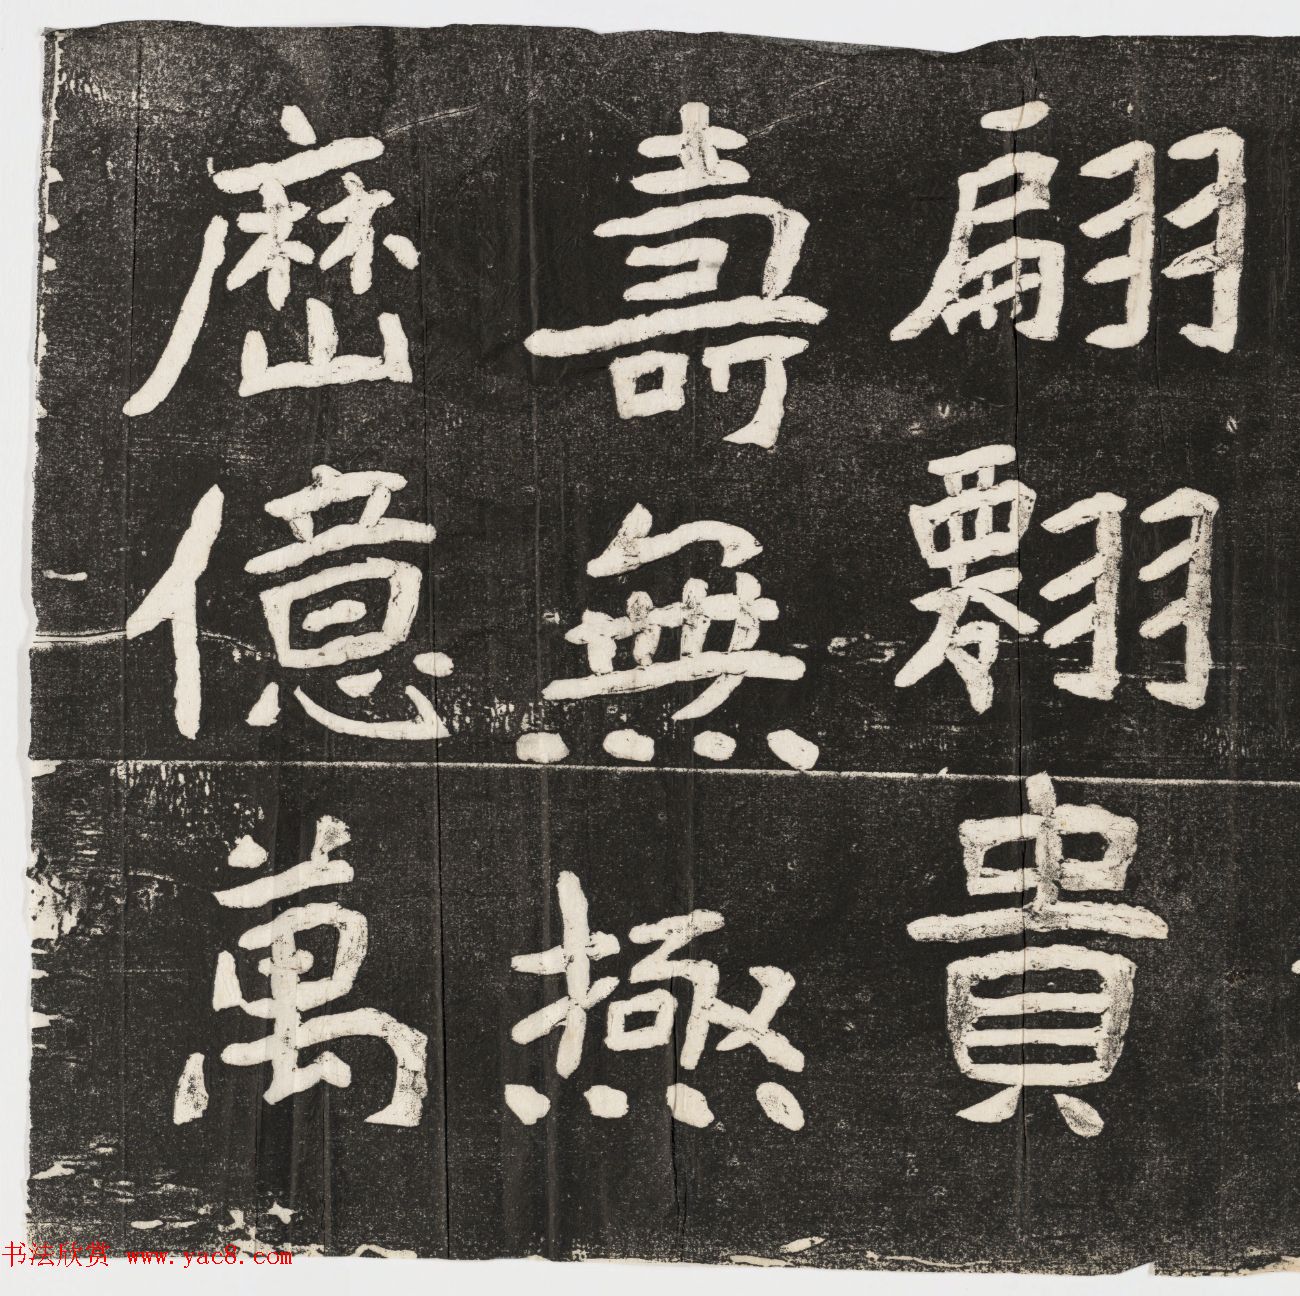 翩翲貴
壽無極
歷億萬
书法欣赏 www.yac8.com